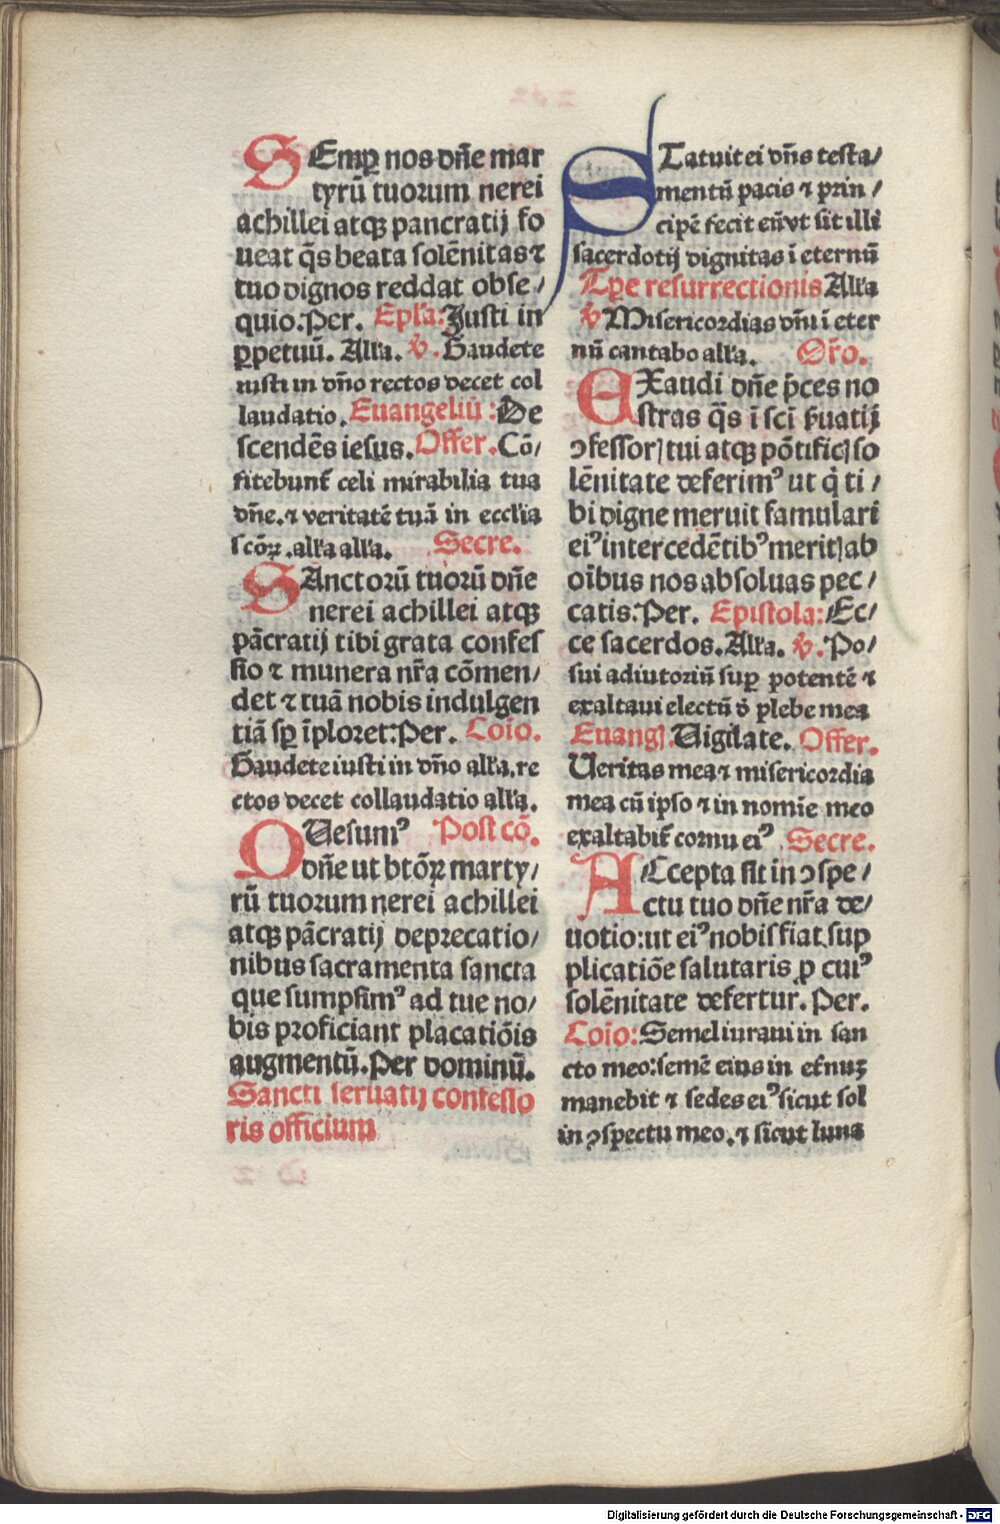 SEmꝑ nos dñe mar
tyrū tuorum nerei
achillei atqꝫ pancratij fo
ueat q̄s beata solēnitas ⁊
tuo dignos reddat obse/
quio. Per. Epl'a: Justi in
ꝑpetuū. All'a. v̕. Gaudete
iusti in dño rectos decet col
laudatio. Euangeliū: De
scendēs iesus. Offer. Cō/
fitebunt̄ celi mirabilia tua
dñe. ⁊ veritatē tuā in eccl'ia
scōꝝ. all'a all'a. Secre.
SAnctorū tuorū dñe
nerei achillei atqꝫ
pācratij tibi grata confes
sio ⁊ munera nr̄a cōmen/
det ⁊ tuā nobis indulgen
tiā sꝑ īploret: Per. Coīo.
Gaudete iusti in dño all'a. re
ctos decet collaudatio all'a.
QUesumꝰ Post cō.
dñe ut btōꝝ marty/
rū tuorum nerei achillei
atqꝫ pācratij deprecatio/
nibus sacramenta sancta
que sumpsimꝰ ad tue no/
bis proficiant placatiōis
augmentū. Per dominū.
Sancti seruatij confesso
ris officium
STatuit ei dñs testa/
mentū pacis ⁊ prin/
cipē fecit eū vt sit illi
sacerdotij dignitas ī eternū
Tꝑe resurrectionis All'a
v̕ Misericordias dñi ī eter
nū cantabo all'a. Or̄o.
EXaudi dñe p̄ces no
stras q̄s ī sci ẜuatij
ↄfessorꝭ tui atqꝫ pōtificꝭ so
lēnitate deferimꝰ ut q̇ ti/
bi digne meruit famulari
eiꝰ intercedētibꝰ meritꝭ ab
oībus nos absoluas pec/
catis. Per. Epistola: Ec/
ce sacerdos. All'a. v̕. Po/
sui adiutoriū suꝑ potentē ⁊
exaltaui electū ď plebe mea
Euangꝭ. Uigilate. Offer.
Ueritas mea ⁊ misericordia
mea cū ipso ⁊ in nomīe meo
exaltabit̄ cornu eiꝰ Secre.
ACcepta sit in ↄspe/
ctu tuo dñe nr̄a de/
uotio: ut eiꝰ nobis fiat sup
plicatiōe salutaris ꝓ cuiꝰ
solēnitate defertur. Per.
Coīo: Semel iuraui in san
cto meo: semē eius in et̄nuꝫ
manebit ⁊ sedes eiꝰ sicut sol
in ↄspectu meo. ⁊ sicut luna
Digitalisierung gefördert durch die Deutsche Forschungsgemeinschaft - DFG